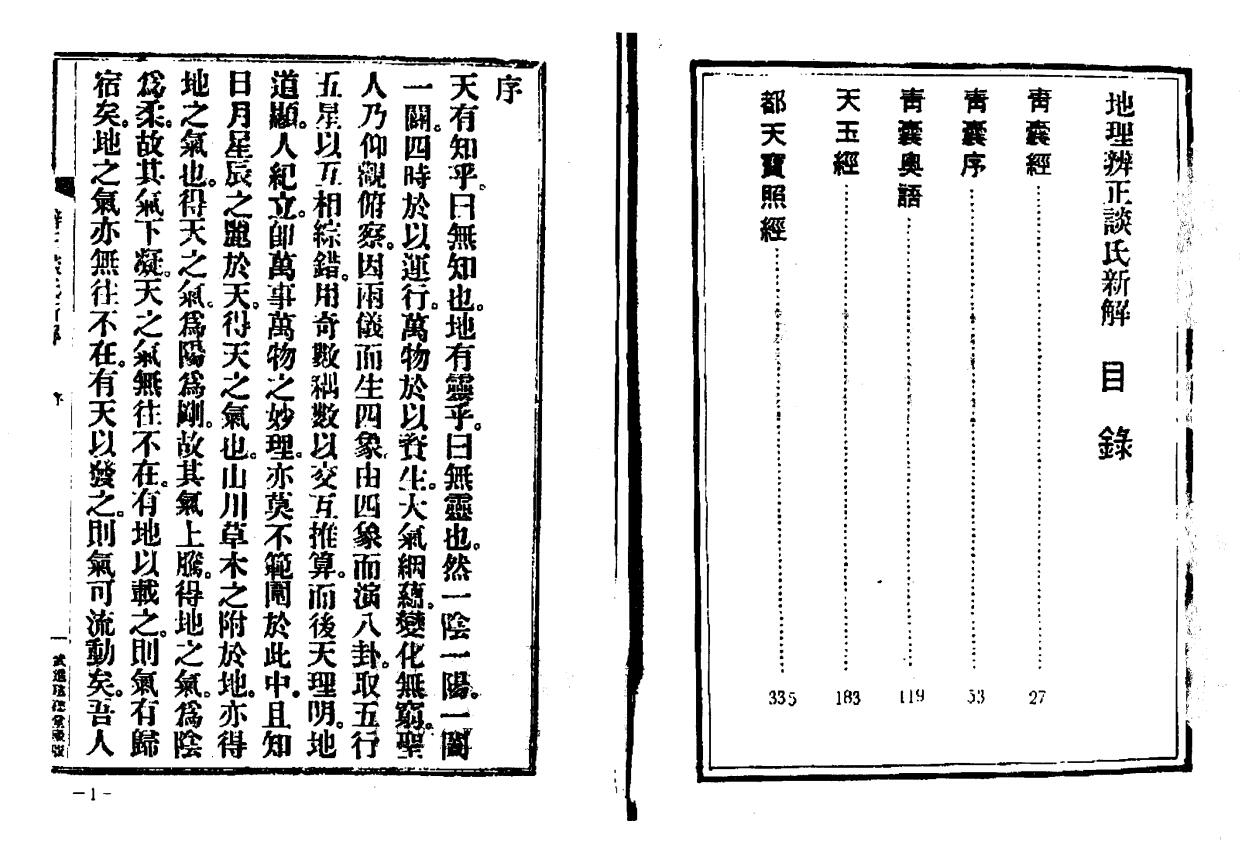 地理辨正談氏新解 目錄
青囊經 27
青囊序 53
青囊奧語 119
天玉經 183
都天寶照經 335
序
天有知乎。曰無知也。地有靈乎。曰無靈也。然一陰一陽。一闔
一闢。四時於以運行。萬物於以資生。大氣絪蘊。變化無窮。聖
人乃仰觀俯察。因兩儀而生四象。由四象而演八卦。取五行
五星以互相綜錯。用奇數耦數以交互推算。而後天理明。地
道顯。人紀立。卽萬事萬物之妙理。亦莫不範圍於此中。且知
日月星辰之麗於天。得天之氣也。山川草木之附於地。亦得
地之氣也。得天之氣。爲陽爲剛。故其氣上騰。得地之氣。爲陰
爲柔。故其氣下凝。天之氣無往不在。有地以載之。則氣有歸
宿矣。地之氣亦無往不在。有天以發之。則氣可流動矣。吾人
序
—1-